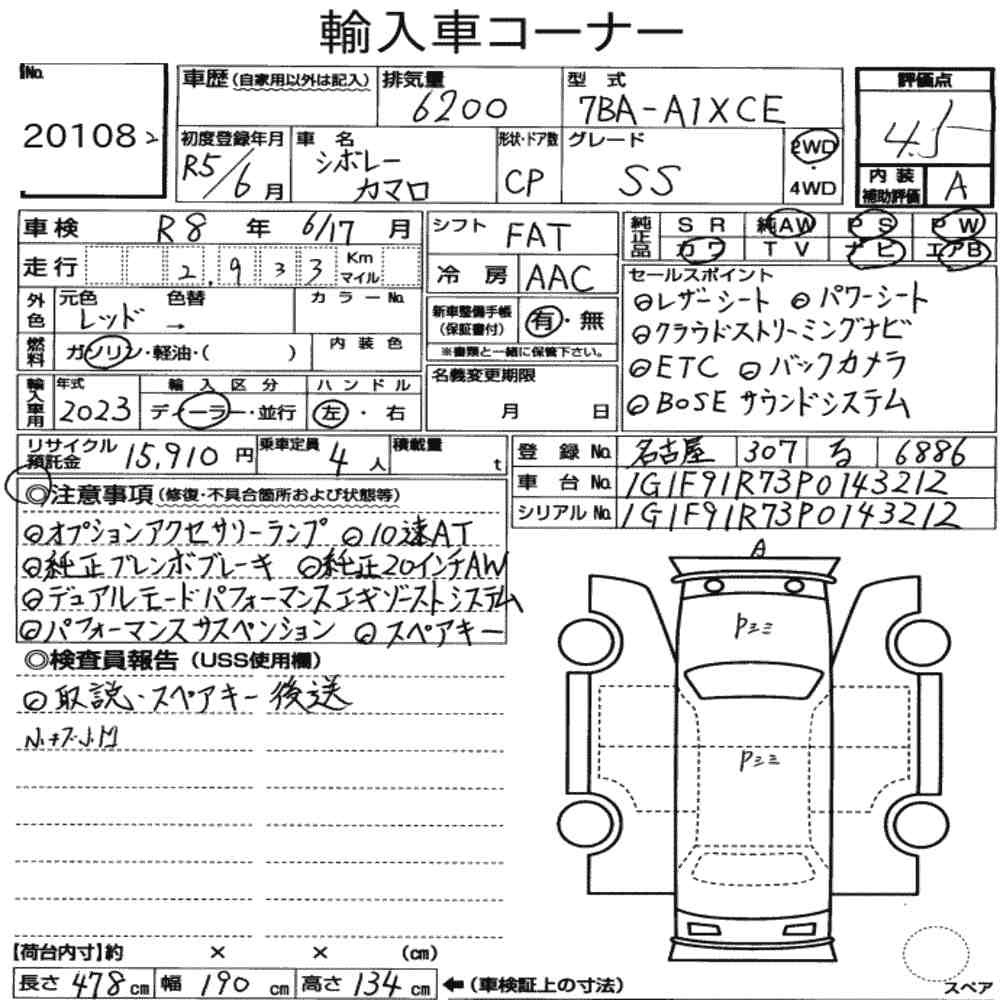 輸入車コーナー
No. 20108 2
車歴(自家用以外は記入) 排気量 6200 型式 7BA-A1XCE 評価点 4.5
初度登録年月 R5/6月 車名 シボレー カマロ 形状・ドア数 CP グレード SS 2WD・4WD 内装補助評価 A
車検 R8年 6/17月 シフト FAT 純正品 SR 純AW PS PW
走行 2,933 Km マイル 冷房 AAC カワ TV ナビ エアB
外色 元色 レッド 色替 → カラーNo. 新車整備手帳(保証書付) 有・無 セールスポイント
※書類と一緒に保管下さい。
燃料 ガソリン・軽油・( ) 内装色
◎レザーシート ◎パワーシート
◎クラウドストリーミングナビ
◎ETC ◎バックカメラ
◎BOSEサウンドシステム
輸入車用 年式 2023 輸入区分 ディーラー・並行 ハンドル 左・右 名義変更期限 月 日
リサイクル預託金 15,910円 乗車定員 4人 積載量 t
登録No. 名古屋 307 る 6886
車台No. 1G1F91R73P0143212
シリアルNo. 1G1F91R73P0143212
◎注意事項(修復・不具合箇所および状態等)
◎オプションアクセサリーランプ ◎10速AT
◎純正ブレンボブレーキ ◎純正20インチAW
◎デュアルモードパフォーマンスエキゾーストシステム
◎パフォーマンスサスペンション ◎スペアキー
◎検査員報告(USS使用欄)
◎取説・スペアキー後送
A
Pミミ
Pミミ
スペア
【荷台内寸】約 × × (cm)
長さ 478cm 幅 190cm 高さ 134cm ←(車検証上の寸法)